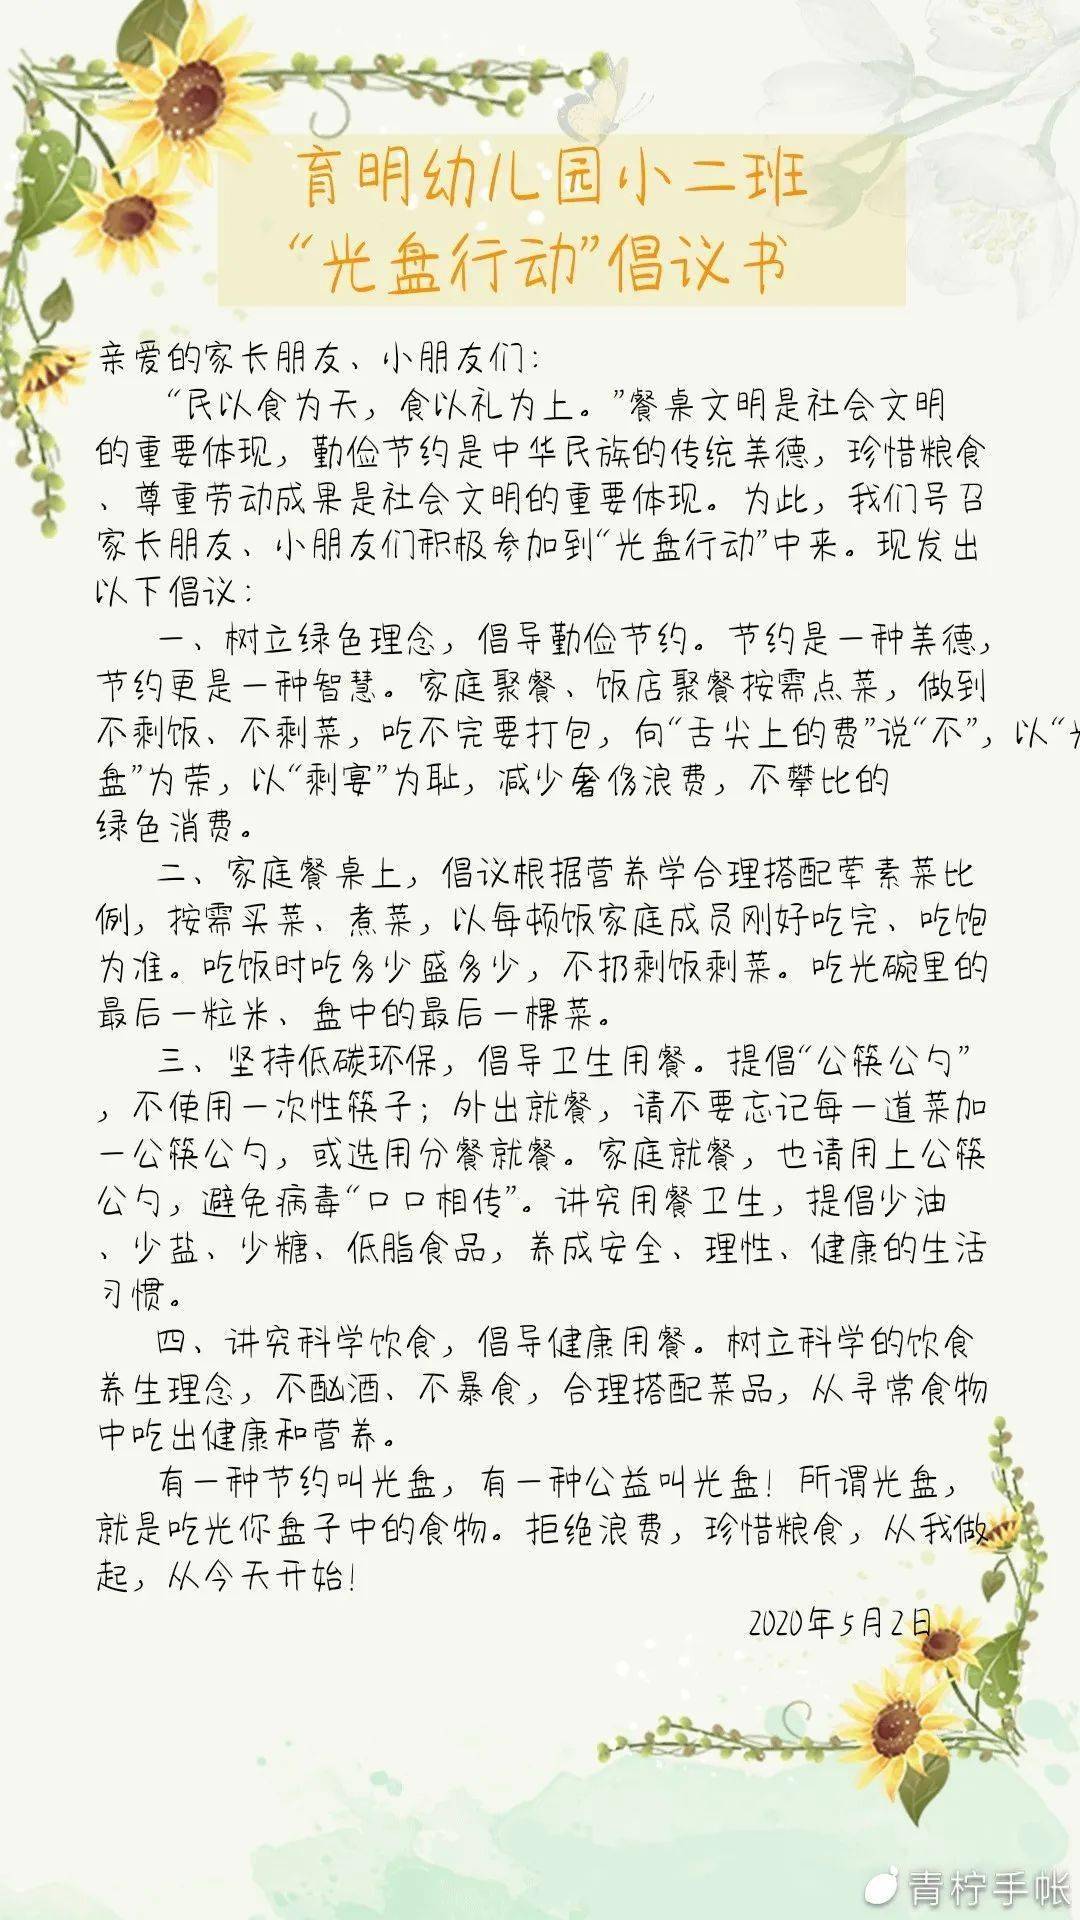 育明幼儿园小二班
“光盘行动”倡议书
亲爱的家长朋友、小朋友们：
“民以食为天，食以礼为上。”餐桌文明是社会文明
的重要体现，勤俭节约是中华民族的传统美德，珍惜粮食
、尊重劳动成果是社会文明的重要体现。为此，我们号召
家长朋友、小朋友们积极参加到“光盘行动”中来。现发出
以下倡议：
一、树立绿色理念，倡导勤俭节约。节约是一种美德，
节约更是一种智慧。家庭聚餐、饭店聚餐按需点菜，做到
不剩饭、不剩菜，吃不完要打包，向“舌尖上的费”说“不”，以“光
盘”为荣，以“剩宴”为耻，减少奢侈浪费，不攀比的
绿色消费。
二、家庭餐桌上，倡议根据营养学合理搭配荤素菜比
例，按需买菜、煮菜，以每顿饭家庭成员刚好吃完、吃饱
为准。吃饭时吃多少盛多少，不扔剩饭剩菜。吃光碗里的
最后一粒米、盘中的最后一棵菜。
三、坚持低碳环保，倡导卫生用餐。提倡“公筷公勺”
，不使用一次性筷子；外出就餐，请不要忘记每一道菜加
一公筷公勺，或选用分餐就餐。家庭就餐，也请用上公筷
公勺，避免病毒“口口相传”。讲究用餐卫生，提倡少油
、少盐、少糖、低脂食品，养成安全、理性、健康的生活
习惯。
四、讲究科学饮食，倡导健康用餐。树立科学的饮食
养生理念，不酗酒、不暴食，合理搭配菜品，从寻常食物
中吃出健康和营养。
有一种节约叫光盘，有一种公益叫光盘！所谓光盘，
就是吃光你盘子中的食物。拒绝浪费，珍惜粮食，从我做
起，从今天开始！
2020年5月2日
青柠手帐